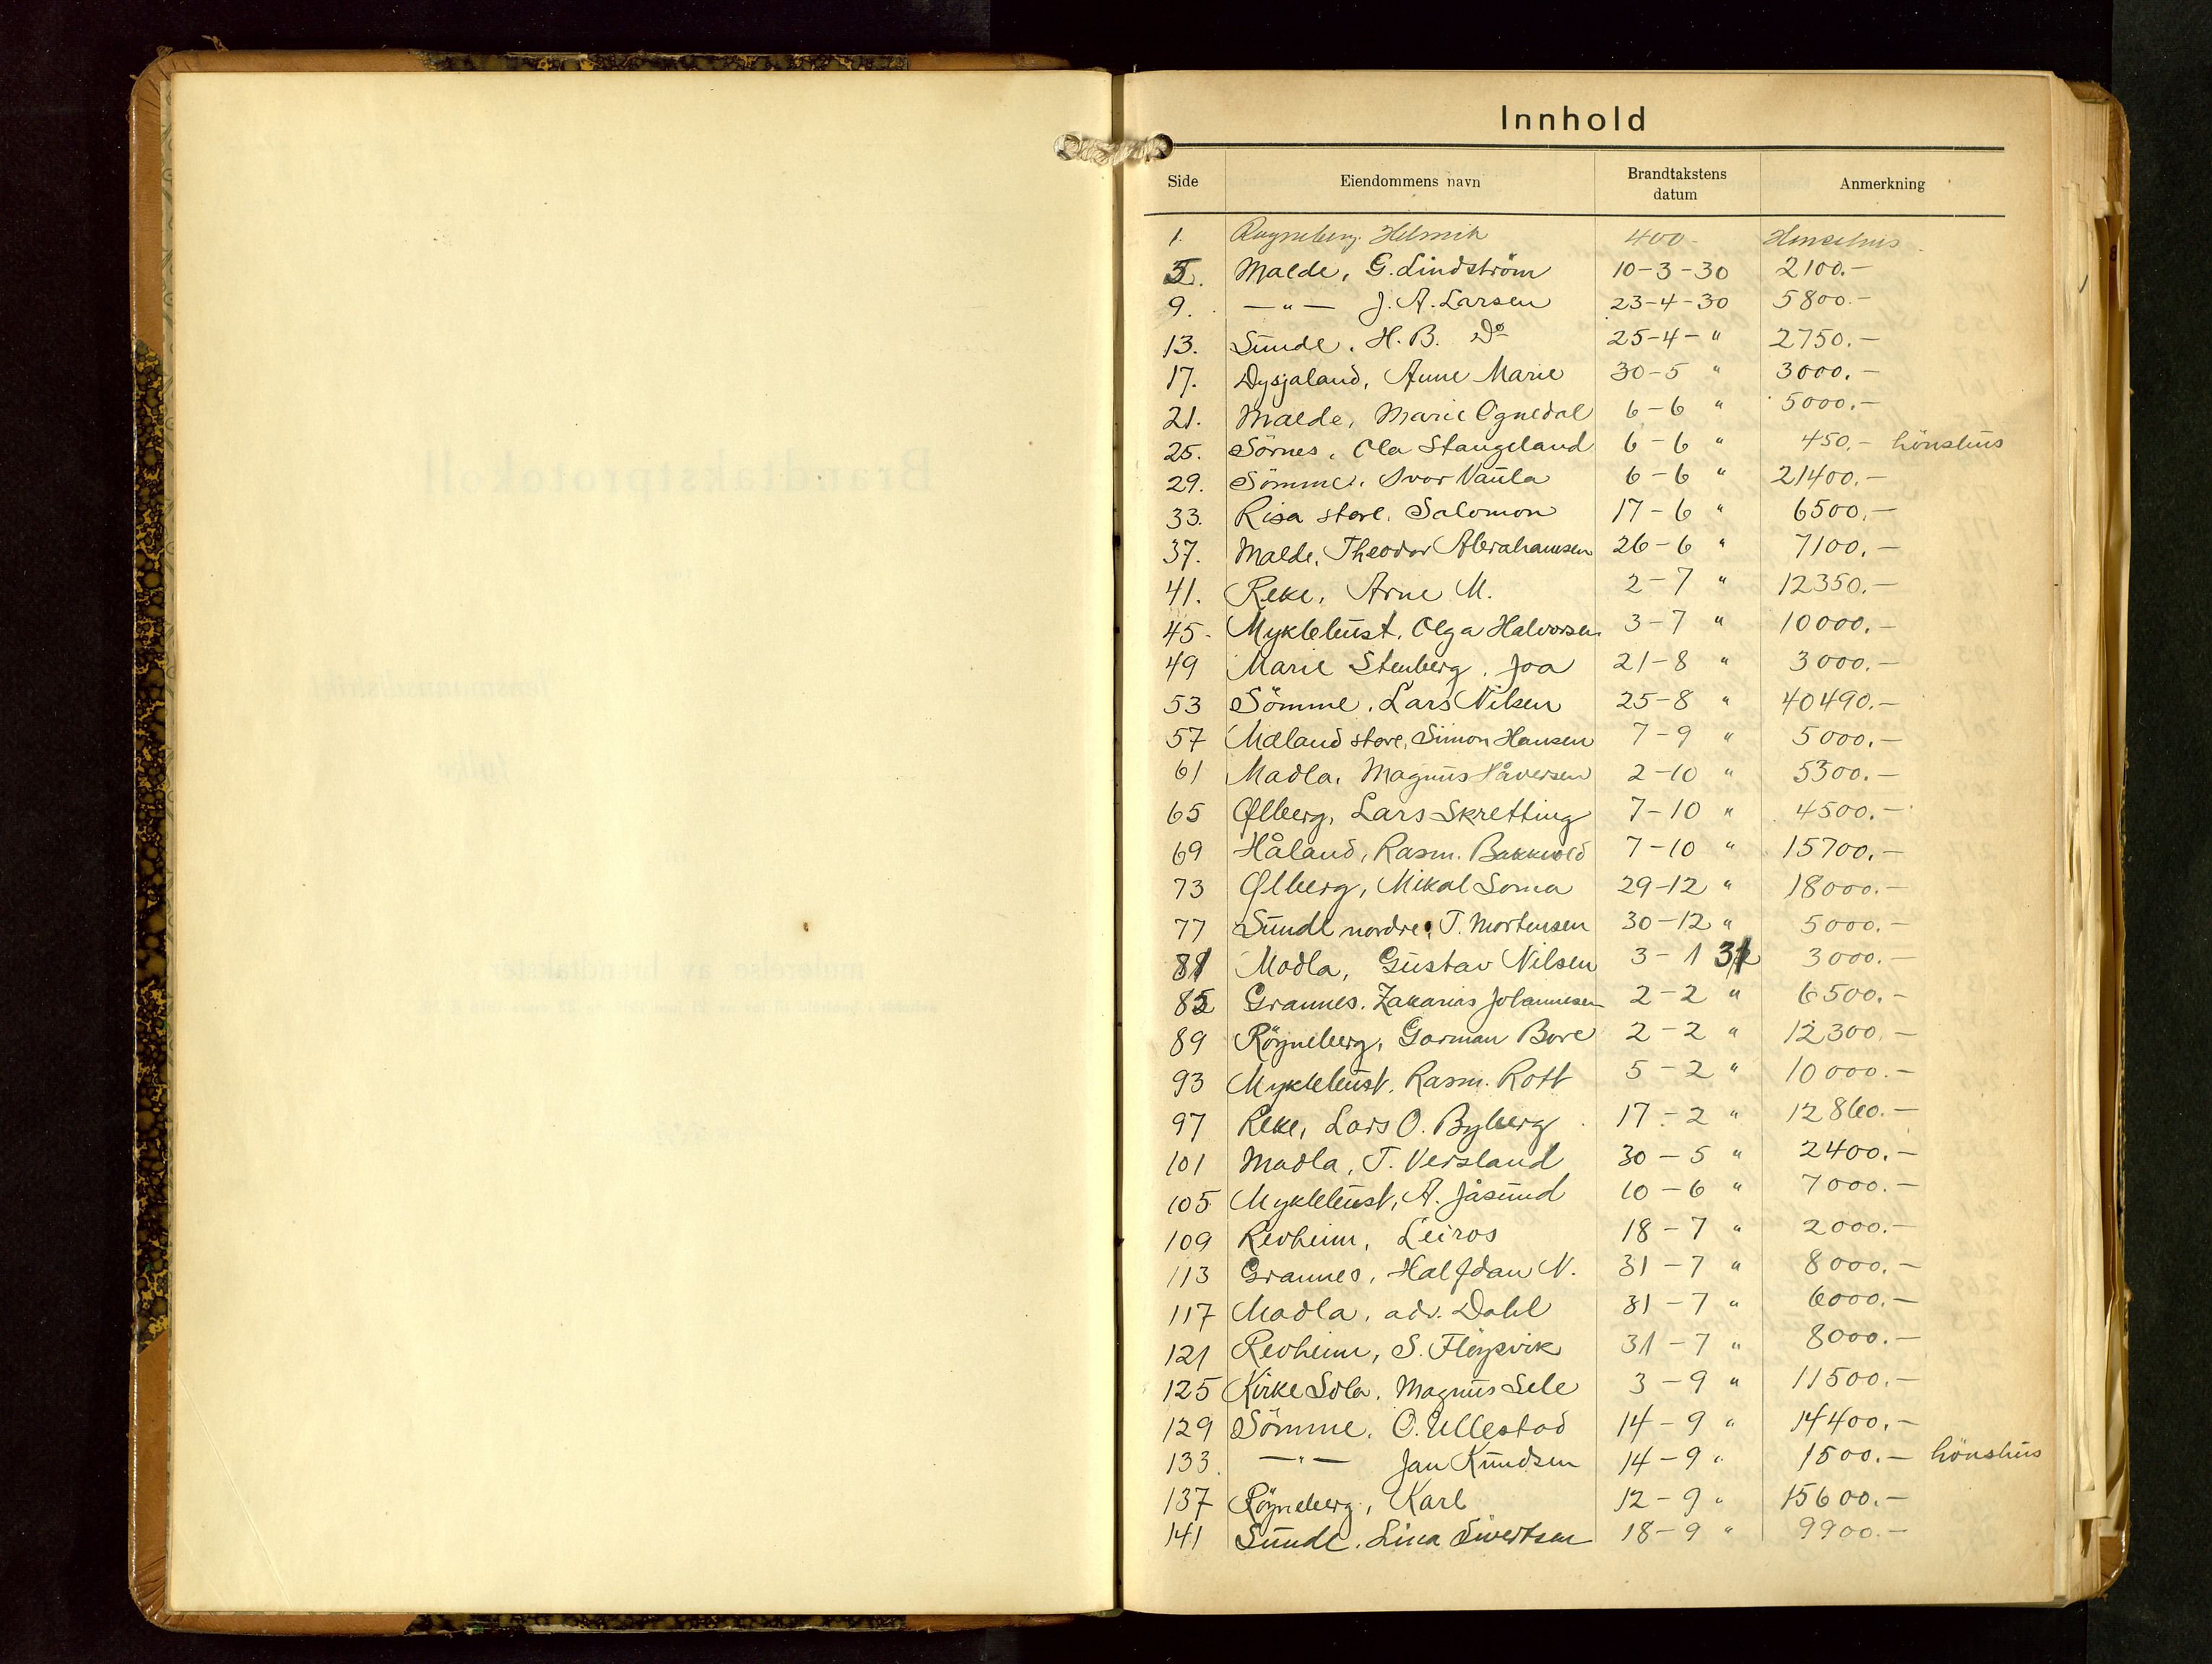 Innhold
Side Eiendommens navn Brandtakstens datum Anmerkning
1. Røyneberg. Helmik 400- Hønsehus.
5. Malde, G. Lindström 10-3-30 2100.-
9. -"- J. A. Larsen 23-4-30 5800.-
13. Sunde. H. B. Do 25-4-" 2750.-
17. Dysjaland, Anne Marie 30-5 " 3000.-
21. Malde, Marie Ognedal 6-6 " 5000.-
25. Sörnes. Ola Stangeland 6-6 " 450.- hönshus
29. Sömme. Ivar Vaula 6-6 " 21400.-
33. Risa store. Salomon 17-6 " 6500.-
37. Malde. Theodor Abrahamsen 26-6 " 7100.-
41. Reke, Arne M. 2-7 " 12350.-
45. Myklebust. Olga Halvorsen 3-7 " 10000.-
49 Marie Stenberg. Joa 21-8 " 3000.-
53 Sömme. Lars Nilsen 25-8 " 40490.-
57 Mæland store, Simon Hansen 7-9 " 5000.-
61 Madla. Magnus Håversen 2-10 " 5300.-
65 Ølberg, Lars Skretting 7-10 " 4500.-
69 Håland, Rasm. Bakkvold 7-10 " 15700.-
73 Ølberg, Mikal Soma 29-12 " 18000.-
77 Sunde nordre, T. Mortensen 30-12 " 5000.-
81 Madla, Gustav Nilsen 3-1 31 3000.-
85 Grannes. Zakarias Johannesen 2-2 " 6500.-
89 Röyneberg, Garman Bore 2-2 " 12300.-
93 Myklebust. Rasm. Rott 5-2 " 10000.-
97 Reke, Lars O. Byberg 17-2 " 12860.-
101 Madla, T. Versland 30-5 " 2400.-
105 Myklebust, A. Jåsund 10-6 " 7000.-
109 Revheim, Leiros 18-7 " 2000.-
113 Grannes, Halfdan N. 31-7 " 8000.-
117 Madla. adv. Dahl 31-7 " 6000.-
121 Revheim, S. Flöysvik 31-7 " 8000.-
125 Kirke Sola. Magnus Sele 3-9 " 11500.-
129 Sömme. O. Ullestad 14-9 " 14400.-
133. -"- Jan Knudsen 14-9 " 1500.- hönshus
137 Röyneberg, Karl 12-9 " 15600.-
141 Sunde. Lina Sivertsen 18-9 " 9900.-